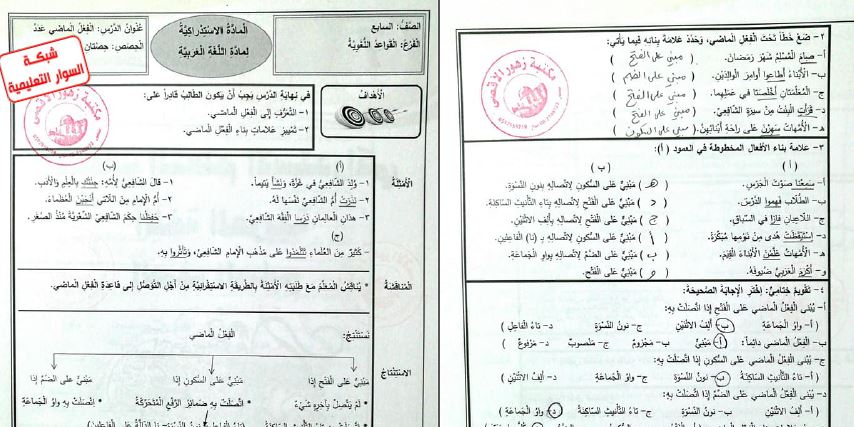 الصَّفُ: السابع
الفَرْعُ: القَواعِدُ اللُّغَوِيَّةُ
المادَّةُ الاسْتِدْراكِيَّةُ
لِمادَّةِ اللُّغَةِ العَرَبِيَّةِ
عُنْوانُ الدَّرْسِ: الفِعْلُ الماضي عَدَدُ
الحِصَصِ: حِصَّتانِ
شبكة
السوار التعليمية
الأَهْدافُ
في نِهايَةِ الدَّرْسِ يَجِبُ أنْ يَكونَ الطّالِبُ قادِراً على:
١- التَّعَرُّفِ إلى الفِعْلِ الماضي.
٢- تَمْييزِ عَلاماتِ بِناءِ الفِعْلِ الماضي.
مكتبة زهور الأقصى
الأَمْثِلَةُ
(أ)
١- وُلِدَ الشّافِعِيُّ في غَزَّةَ، وَنَشَأَ يَتيماً.
٢- نَذَرَتْ أُمُّ الشّافِعِيِّ نَفْسَها لَهُ.
٣- هذانِ العالِمانِ دَرَسا الفِقْهَ الشّافِعِيَّ.
(ب)
١- قالَ الشّافِعِيُّ لِأُمِّهِ: جِئْتُكِ بِالعِلْمِ وَالأَدَبِ.
٢- أُمُّ الإمامِ مِنَ اللّاتي أَنْجَبْنَ العُظَماءَ.
٣- حَفِظْنا حِكَمَ الشّافِعِيِّ الشِّعْرِيَّةَ مُنْذُ الصِّغَرِ.
(ج)
- كَثيرٌ مِنَ العُلَماءِ تَتَلْمَذوا عَلى مَذْهَبِ الإمامِ الشّافِعِيِّ، وَتَأَثَّروا بِهِ.
المُناقَشَةُ
* يُناقِشُ المُعَلِّمُ مَعَ طَلَبَتِهِ الأَمْثِلَةَ بِالطَّريقَةِ الاسْتِقْرائِيَّةِ مِنْ أَجْلِ التَّوَصُّلِ إلى قاعِدَةِ الفِعْلِ الماضي.
الاسْتِنْتاجُ
نَسْتَنْتِجُ:
الفِعْلُ الماضي
مَبْنِيٌّ عَلى الفَتْحِ إذا
مَبْنِيٌّ عَلى السُّكونِ إذا
مَبْنِيٌّ عَلى الضَّمِّ إذا
* لَمْ يَتَّصِلْ بِآخِرِهِ شَيْءٌ
* اتَّصَلَتْ بِهِ ضَمائِرُ الرَّفْعِ المُتَحَرِّكَةُ
* اتَّصَلَتْ بِهِ واوُ الجَماعَةِ
٢- ضَعْ خَطّاً تَحْتَ الفِعْلِ الماضي، وَحَدِّدْ عَلامَةَ بِنائِهِ فيما يَأْتي:
أ- صامَ المُسْلِمُ شَهْرَ رَمَضانَ. ( مبني على الفتح )
ب- الأَبْناءُ أَطاعوا أَوامِرَ الوالِدَيْنِ. ( مبني على الضم )
ج- المُعَلِّمَتانِ أَخْلَصَتا في عَمَلِهِما. ( مبني على الفتح )
د- قَرَأَتِ البِنْتُ مِنْ سيرَةِ الشّافِعِيِّ. ( مبني على الفتح )
هـ- الأُمَّهاتُ سَهِرْنَ عَلى راحَةِ أَبْنائِهِنَّ. ( مبني على السكون )
مكتبة زهور الأقصى
٣- عَلامَةُ بِناءِ الأَفْعالِ المَخْطوطَةِ في العَمودِ (أ):
( أ ) ( ب )
أ- سَمِعْنا صَوْتَ الجَرَسِ. ( هـ ) مَبْنِيٌّ عَلى السُّكونِ لِاتِّصالِهِ بِنونِ النِّسْوَةِ.
ب- الطُّلّابُ فَهِموا الدَّرْسَ. ( د ) مَبْنِيٌّ عَلى الفَتْحِ لِاتِّصالِهِ بِتاءِ التَّأْنيثِ السّاكِنَةِ.
ج- اللّاعِبانِ فازا في السِّباقِ. ( ج ) مَبْنِيٌّ عَلى الفَتْحِ لِاتِّصالِهِ بِأَلِفِ الاثْنَيْنِ.
د- اسْتَيْقَظَتْ هُدى مِنْ نَوْمِها مُبَكِّرَةً. ( أ ) مَبْنِيٌّ عَلى السُّكونِ لِاتِّصالِهِ بِـ (نا) الفاعِلينَ.
هـ- الأُمَّهاتُ عَلَّمْنَ الأَبْناءَ القِيَمَ. ( ب ) مَبْنِيٌّ عَلى الضَّمِّ لِاتِّصالِهِ بِواوِ الجَماعَةِ.
و- أَكْرَمَ العَرَبِيُّ ضُيوفَهُ. ( و ) مَبْنِيٌّ عَلى الفَتْحِ.
٤- تَقْويمٌ خِتامِيٌّ: اخْتَرِ الإجابَةَ الصَّحيحَةَ:
أ- يُبْنى الفِعْلُ الماضي عَلى الفَتْحِ إذا اتَّصَلَتْ بِهِ:
( أ- واوُ الجَماعَةِ ب- أَلِفُ الاثْنَيْنِ ج- نونُ النِّسْوَةِ د- تاءُ الفاعِلِ )
ب- الفِعْلُ الماضي دائِماً: ( أ- مَبْنِيٌّ ب- مَجْزومٌ ج- مَنْصوبٌ د- مَرْفوعٌ )
ج- يُبْنى الفِعْلُ الماضي عَلى السُّكونِ إذا اتَّصَلَتْ بِهِ:
( أ- تاءُ التَّأْنيثِ السّاكِنَةُ ب- نونُ النِّسْوَةِ ج- واوُ الجَماعَةِ د- أَلِفُ الاثْنَيْنِ )
د- يُبْنى الفِعْلُ الماضي عَلى الضَّمِّ إذا اتَّصَلَتْ بِهِ:
( أ- أَلِفُ الاثْنَيْنِ ب- نونُ النِّسْوَةِ ج- تاءُ التَّأْنيثِ السّاكِنَةُ د- واوُ الجَماعَةِ )